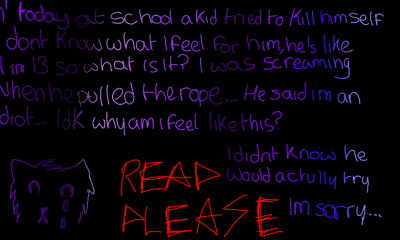 n' today at school a kid tried to kill himself
I dont know what I feel for him, he's like
I im 13 so what is it? I was screaming
when he pulled the rope... He said im an
idiot... Idk why am i feel like this?
I didnt know he
would actully try
Im sorry...
READ
PLEASE